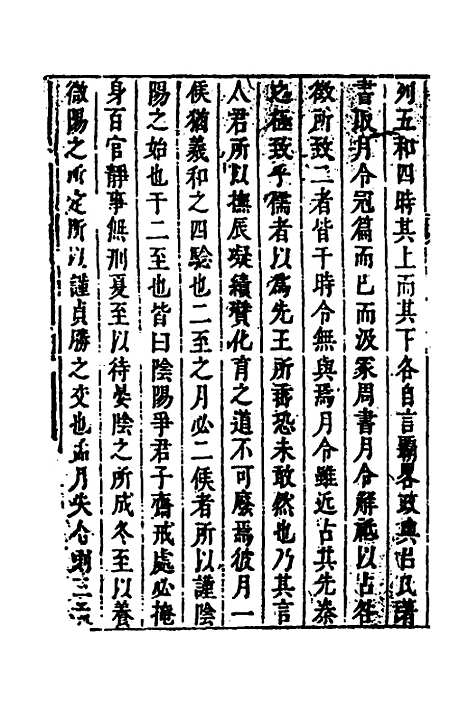 列五和四時其上而其下各自言勸畧政典吕氏諸
書取月令冠篇而已而汲冢周書月令解祗以占咎
徵所致二者皆于時令無與焉月令雖近占其先泰
極致乎儒者以爲先王所畨恐未敢然也乃其言
人君所以撫辰凝績贊化育之道不可廢焉彼月一
候猶羲和之四驗也二至之月必二候者所以謹陰
陽之始也于二至也皆曰陰陽爭君子齋戒處必掩
身百官靜事無刑夏至以待晏陰之所成冬至以養
微陽之所定所以謹貞勝之交也孟月失令則三